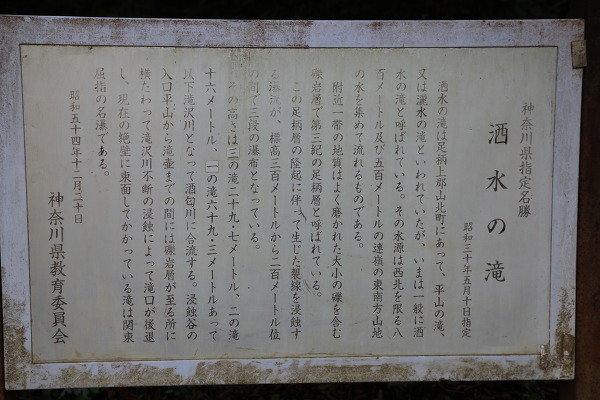 神奈川県指定名勝
洒水の滝
昭和三十年五月十日指定
洒水の滝は足柄上郡山北町にあって、平山の滝、
又は灑水の滝といわれていたが、いまは一般に洒
水の滝と呼ばれている。その水源は西北を限る八
百メートル及び五百メートルの連嶺の東南方山地
の水を集めて流れるものである。
附近一帯の地質はよく磨かれた大小の礫を含む
礫岩層で第三紀の足柄層と呼ばれている。
この足柄層の隆起に伴って生じた襞線を浸蝕す
る瀑流が、標高三百メートルから二百メートル位
の間で三段の瀑布となっている。
その高さは三の滝二十九・七メートル、二の滝
十六メートル、一の滝六十九・三メートルあって
以下滝沢川となって酒匂川に合流する。浸蝕谷の
入口平山から滝壺までの間には礫岩層が至る所に
横たわって滝沢川不断の浸蝕によって滝口が後退
し、現在の絶壁に東面してかかっている滝は関東
屈指の名瀑である。
昭和五十四年十二月二十日
神奈川県教育委員会